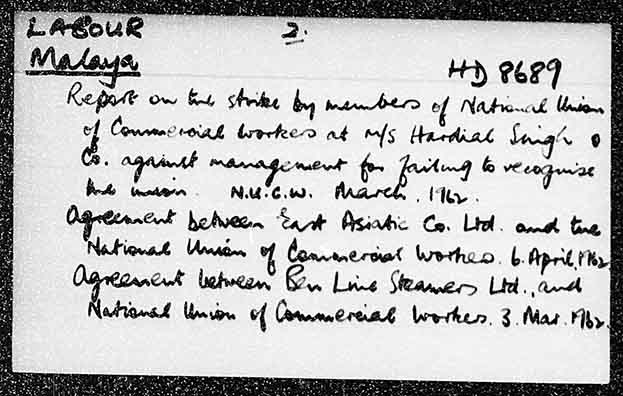 LABOUR 2.
Malaya
HD 8689
Report on the strike by members of National Union
of Commercial Workers at M/S Hardial Singh &
Co. against management for failing to recognise
the union. N.U.C.W. March, 1962.
Agreement between East Asiatic Co. Ltd. and the
National Union of Commercial Workers. 6. April, 1962.
Agreement between Ben Line Steamers Ltd., and
National Union of Commercial Workers. 3. Mar. 1962.